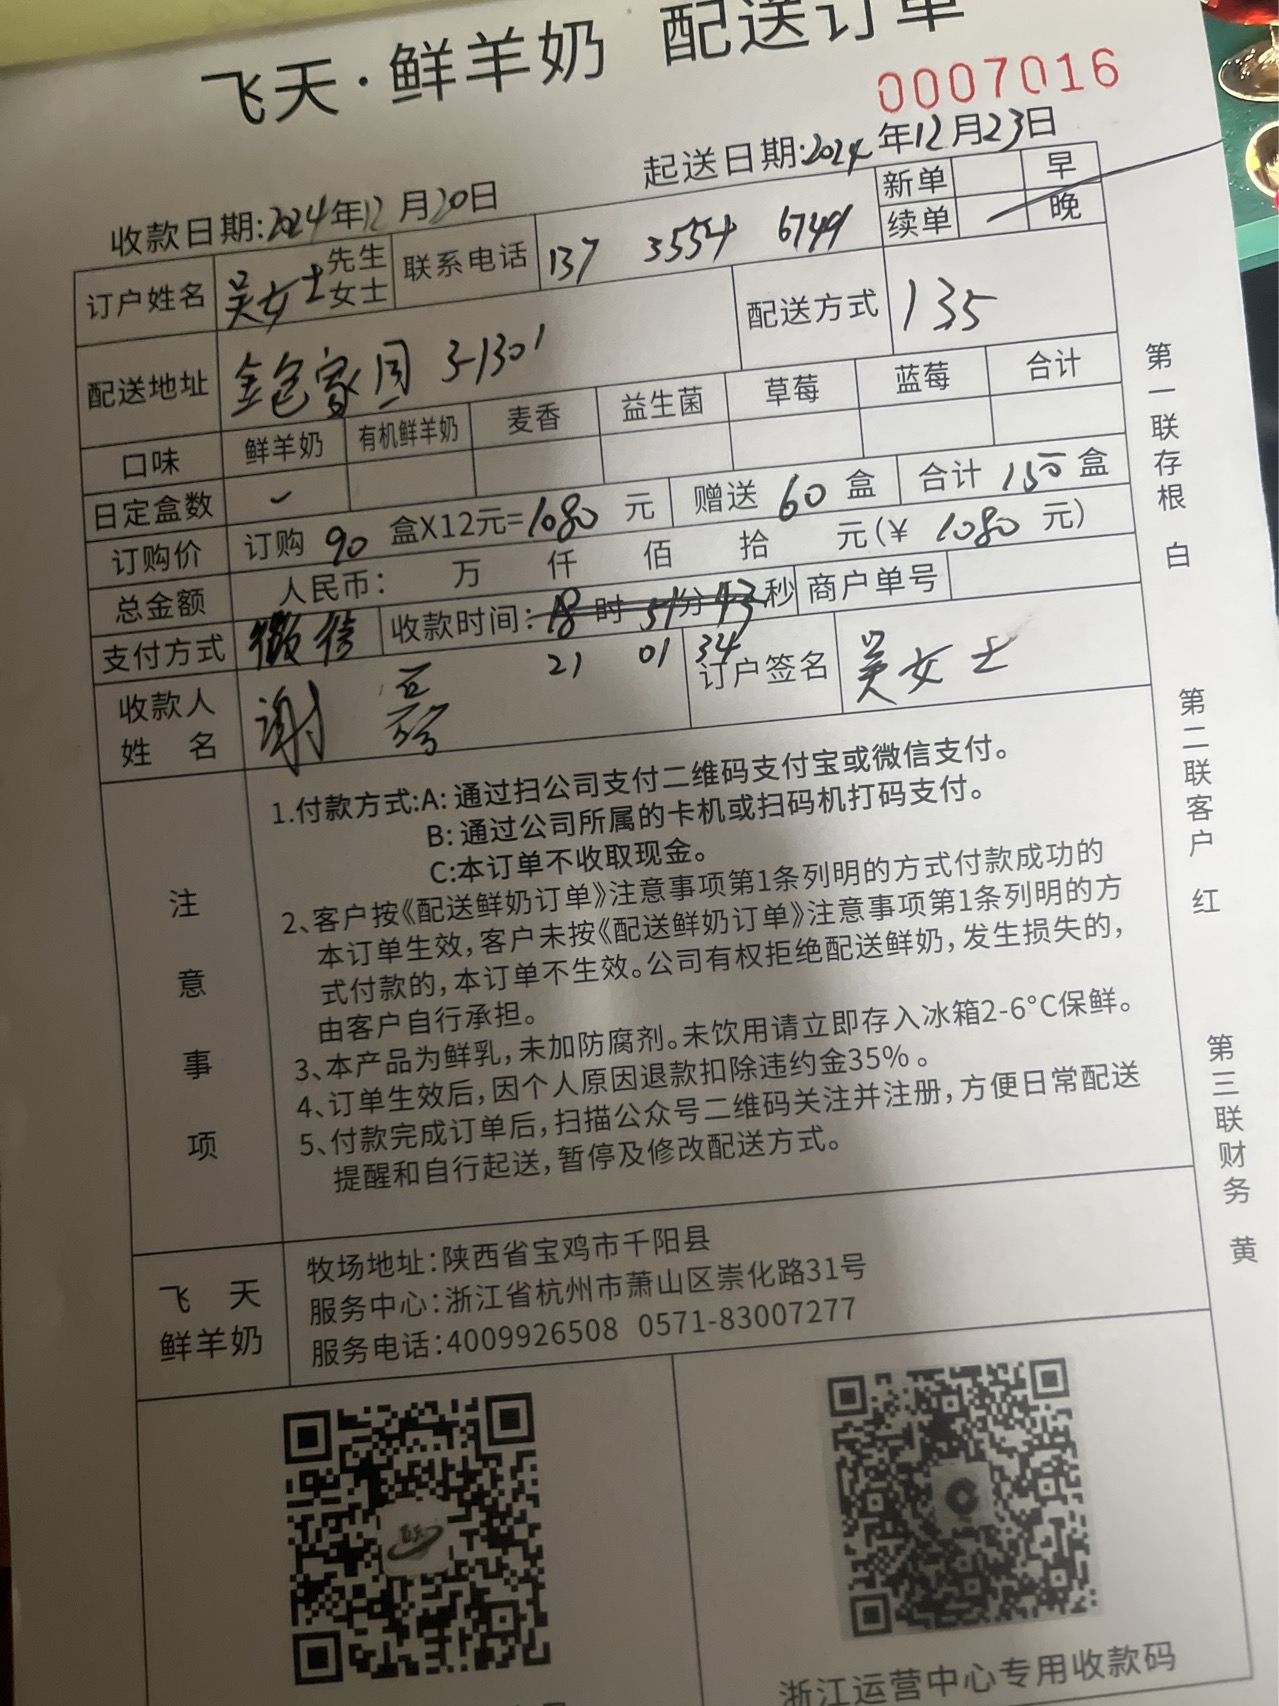 飞天·鲜羊奶 配送订单
0007016
收款日期:2024年12月20日 起送日期:2024年12月23日
订户姓名 吴女士 先生 女士 联系电话 137 3554 6749 新单 早
续单 晚
配送地址 金色家园 3-1301 配送方式 135
口味 鲜羊奶 有机鲜羊奶 麦香 益生菌 草莓 蓝莓 合计
日定盒数 一
订购价 订购 90 盒X12元=1080 元 赠送 60 盒 合计 150 盒
总金额 人民币: 万 仟 佰 拾 元(¥ 1080 元)
支付方式 微信 收款时间: 18 时 51 分 43 秒 商户单号
21 01 34
收款人姓名 谢 订户签名 吴女士
注意事项
1.付款方式:A: 通过扫公司支付二维码支付宝或微信支付。
B: 通过公司所属的卡机或扫码机打码支付。
C:本订单不收取现金。
2、客户按《配送鲜奶订单》注意事项第1条列明的方式付款成功的
本订单生效,客户未按《配送鲜奶订单》注意事项第1条列明的方
式付款的,本订单不生效。公司有权拒绝配送鲜奶,发生损失的,
由客户自行承担。
3、本产品为鲜乳,未加防腐剂。未饮用请立即存入冰箱2-6°C保鲜。
4、订单生效后,因个人原因退款扣除违约金35%。
5、付款完成订单后,扫描公众号二维码关注并注册,方便日常配送
提醒和自行起送,暂停及修改配送方式。
飞天
鲜羊奶
牧场地址:陕西省宝鸡市千阳县
服务中心:浙江省杭州市萧山区崇化路31号
服务电话:4009926508 0571-83007277
浙江运营中心专用收款码
第一联存根 白
第二联客户 红
第三联财务 黄